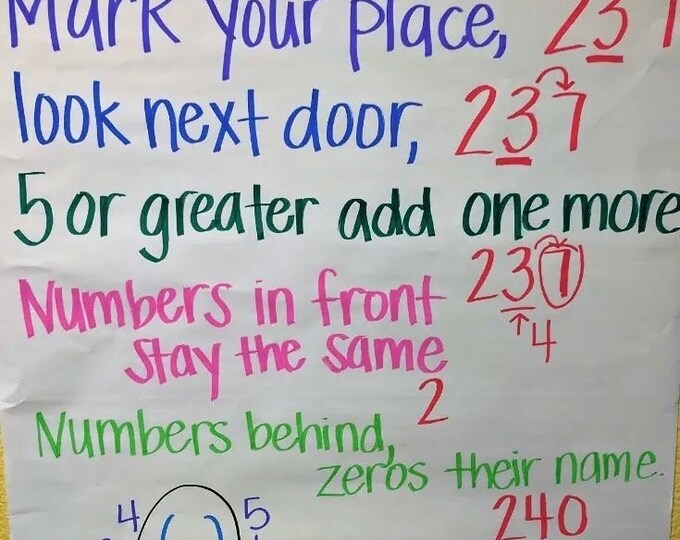 Mark your place, 237
look next door, 237
5 or greater add one more
237
4
Numbers in front
stay the same
2
Numbers behind,
zeros their name.
240
4 5